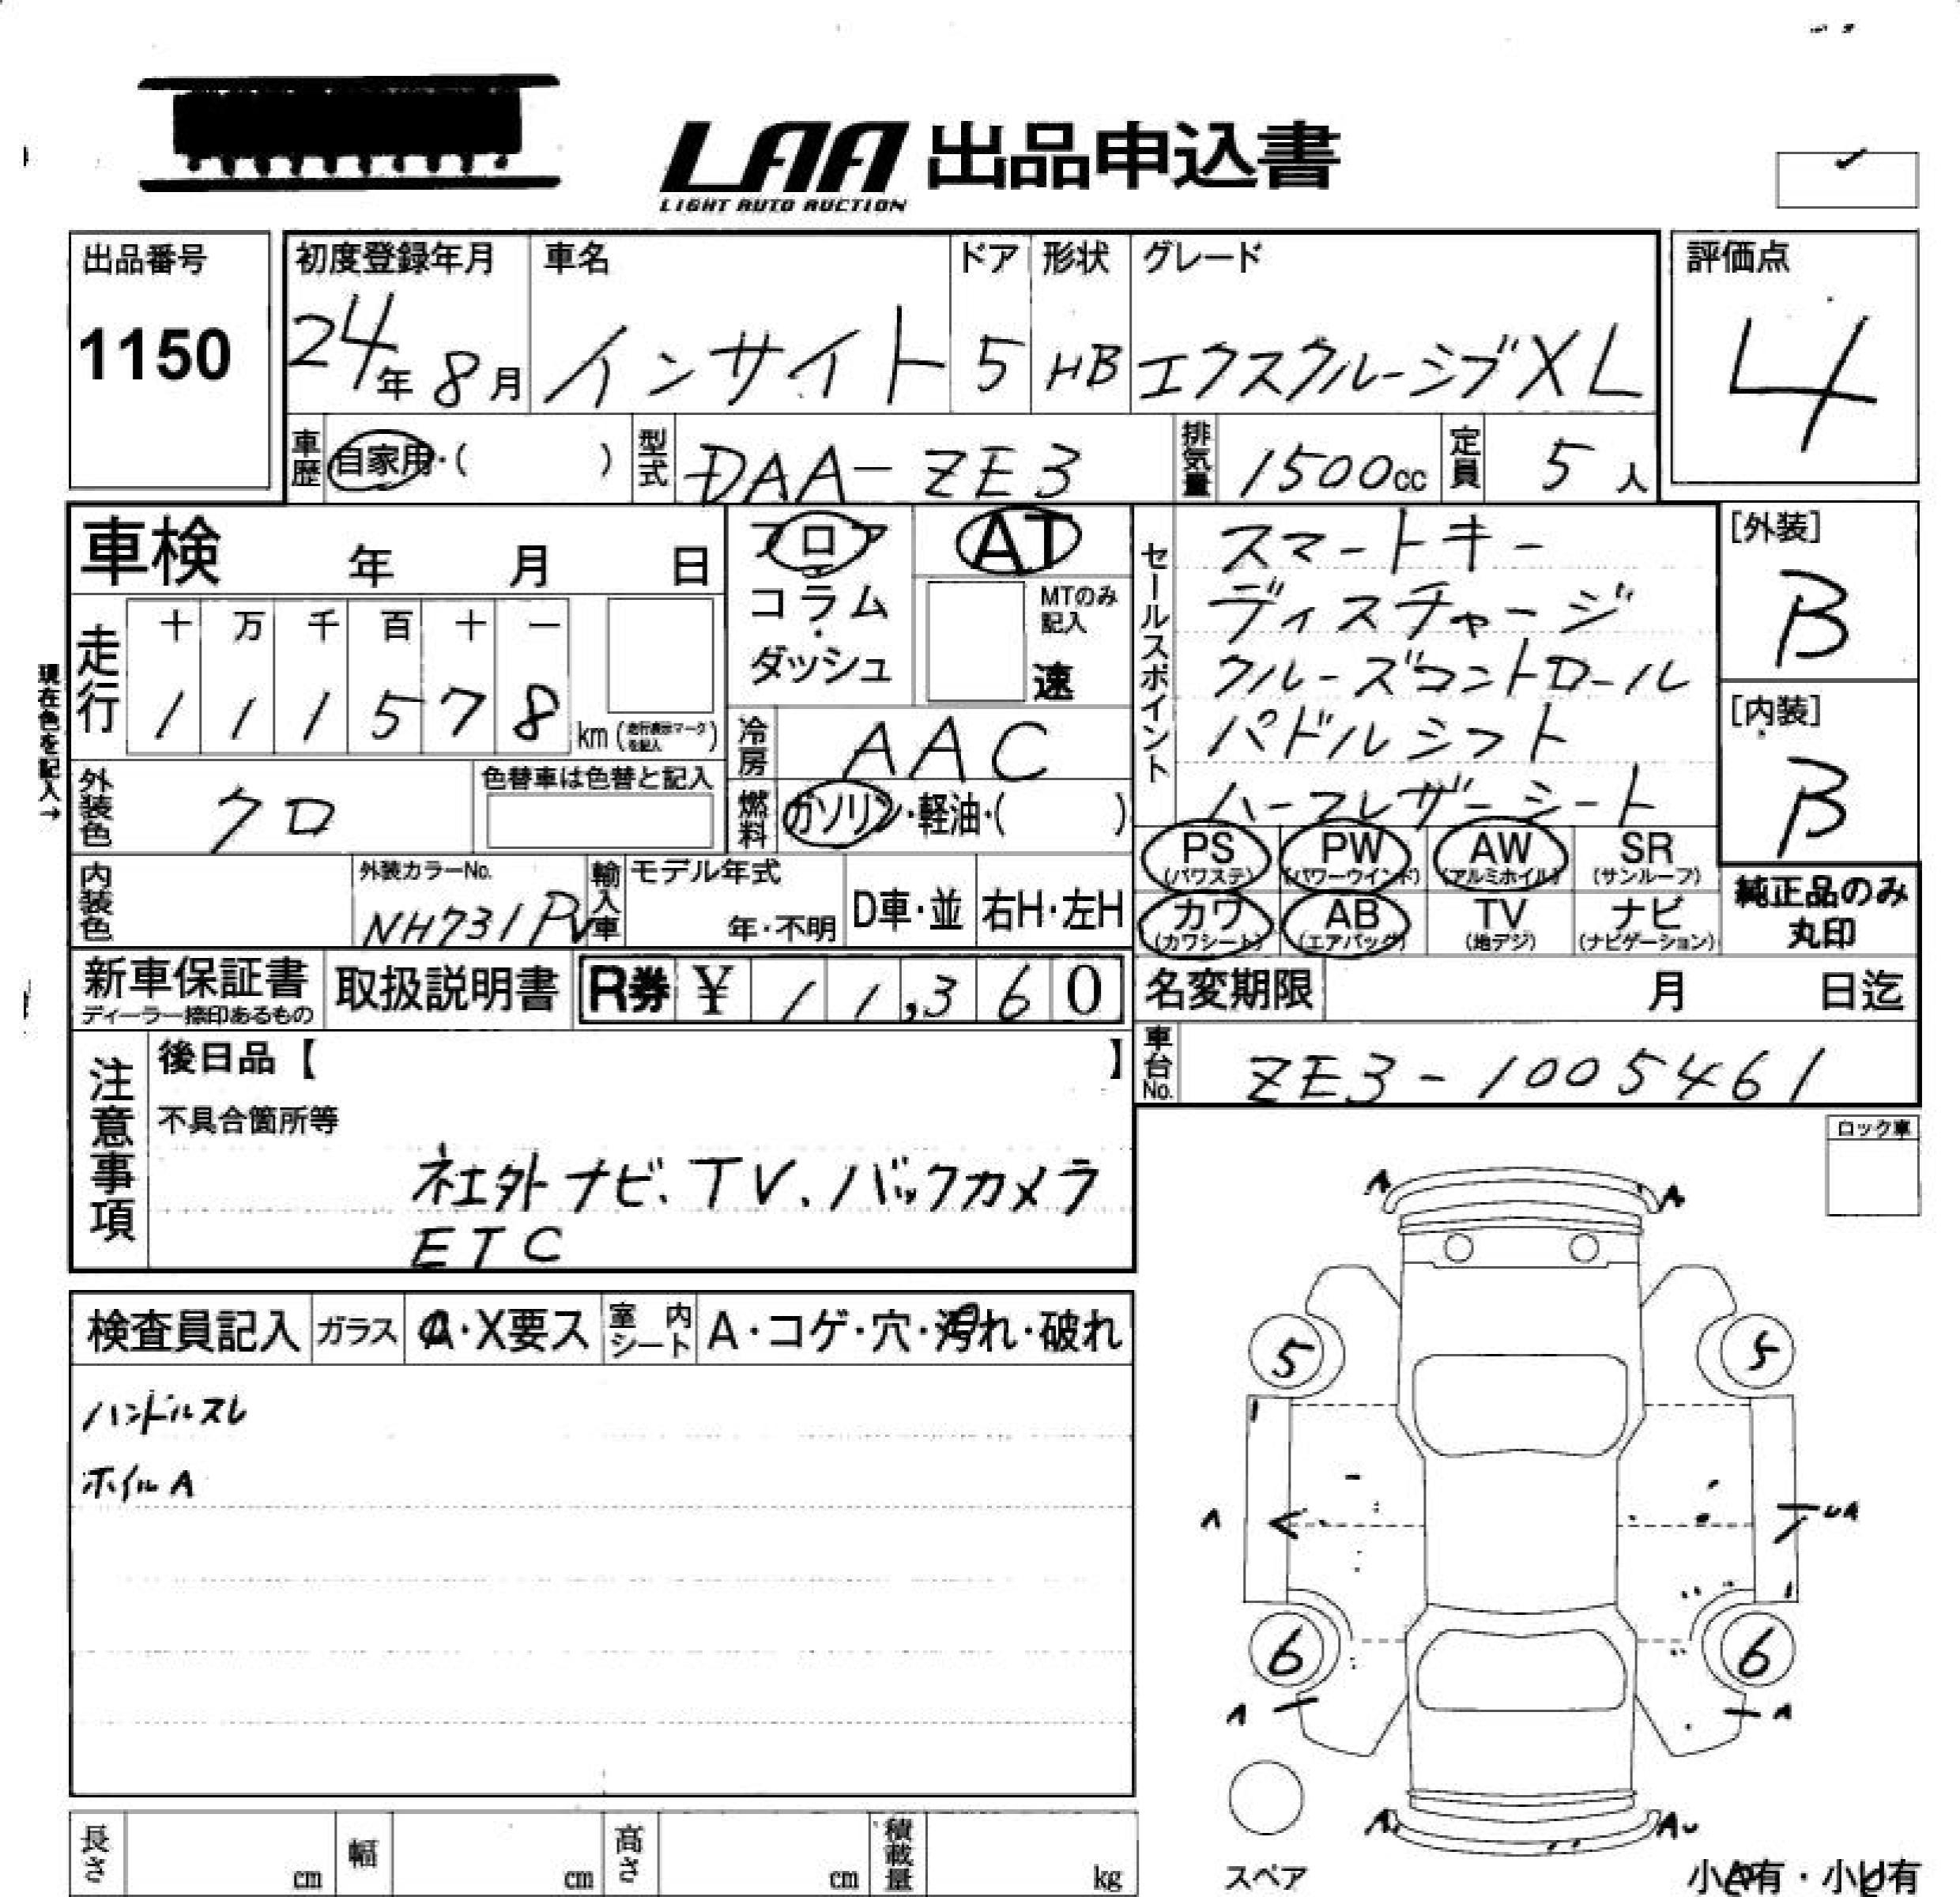 LAA 出品申込書
LIGHT AUTO AUCTION
出品番号
1150
初度登録年月
24年 8月
車名
インサイト
ドア
5
形状
HB
グレード
エクスクルーシブXL
評価点
4
車歴 自家用・( )
型式 DAA-ZE3
排気量 1500cc
定員 5人
車検 年 月 日
フロア
コラム
・
ダッシュ
AT
MTのみ
記入
速
セールスポイント
スマートキー
ディスチャージ
クルーズコントロール
パドルシフト
ハーフレザーシート
[外装]
B
[内装]
B
現在色を記入→
走行
十 万 千 百 十 一
1 1 1 5 7 8 km
冷房 AAC
燃料 ガソリン・軽油・( )
外装色 クロ
色替車は色替と記入
PS (パワステ)
PW (パワーウインド)
AW (アルミホイル)
SR (サンルーフ)
カワ (カワシート)
AB (エアバッグ)
TV (地デジ)
ナビ (ナビゲーション)
純正品のみ
丸印
内装色
外装カラーNo.
NH731PV
輸入車
モデル年式
年・不明
D車・並
右H・左H
新車保証書
ディーラー捺印あるもの
取扱説明書
R券 ¥ 11,360
名変期限 月 日迄
車台No. ZE3-1005461
注意事項
後日品【 】
不具合箇所等
社外ナビ、TV、バックカメラ
ETC
ロック車
検査員記入
ガラス A・X要ス
室内シート A・コゲ・穴・汚れ・破れ
ハンドルスレ
ホイルA
A A
5 5
A UA
6 6
A A
A AU
スペア
小A有・小U有
長さ cm
幅 cm
高さ cm
積載量 kg